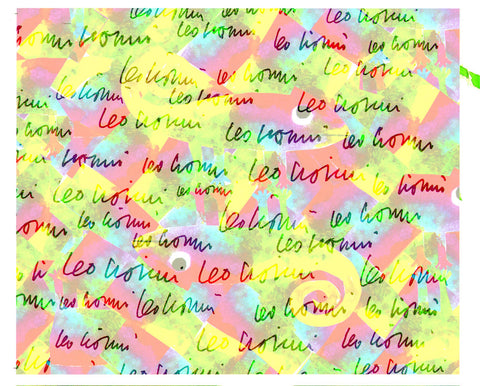 leo lionni leo lionni leo lionni leo lionni leo lionni
leo lionni leo lionni leo lionni
leo lionni leo lionni leo lionni leo lionni
leo lionni leo lionni leo lionni
leo lionni leo lionni
leo lionni leo lionni leo lionni leo lionni
leo lionni leo lionni leo lionni
leo lionni leo lionni leo lionni leo lionni
leo lionni leo lionni leo lionni leo lionni
leo lionni leo lionni
leo lionni leo lionni leo lionni
leo lionni leo lionni leo lionni leo lionni leo lionni
leo lionni leo lionni leo lionni leo lionni